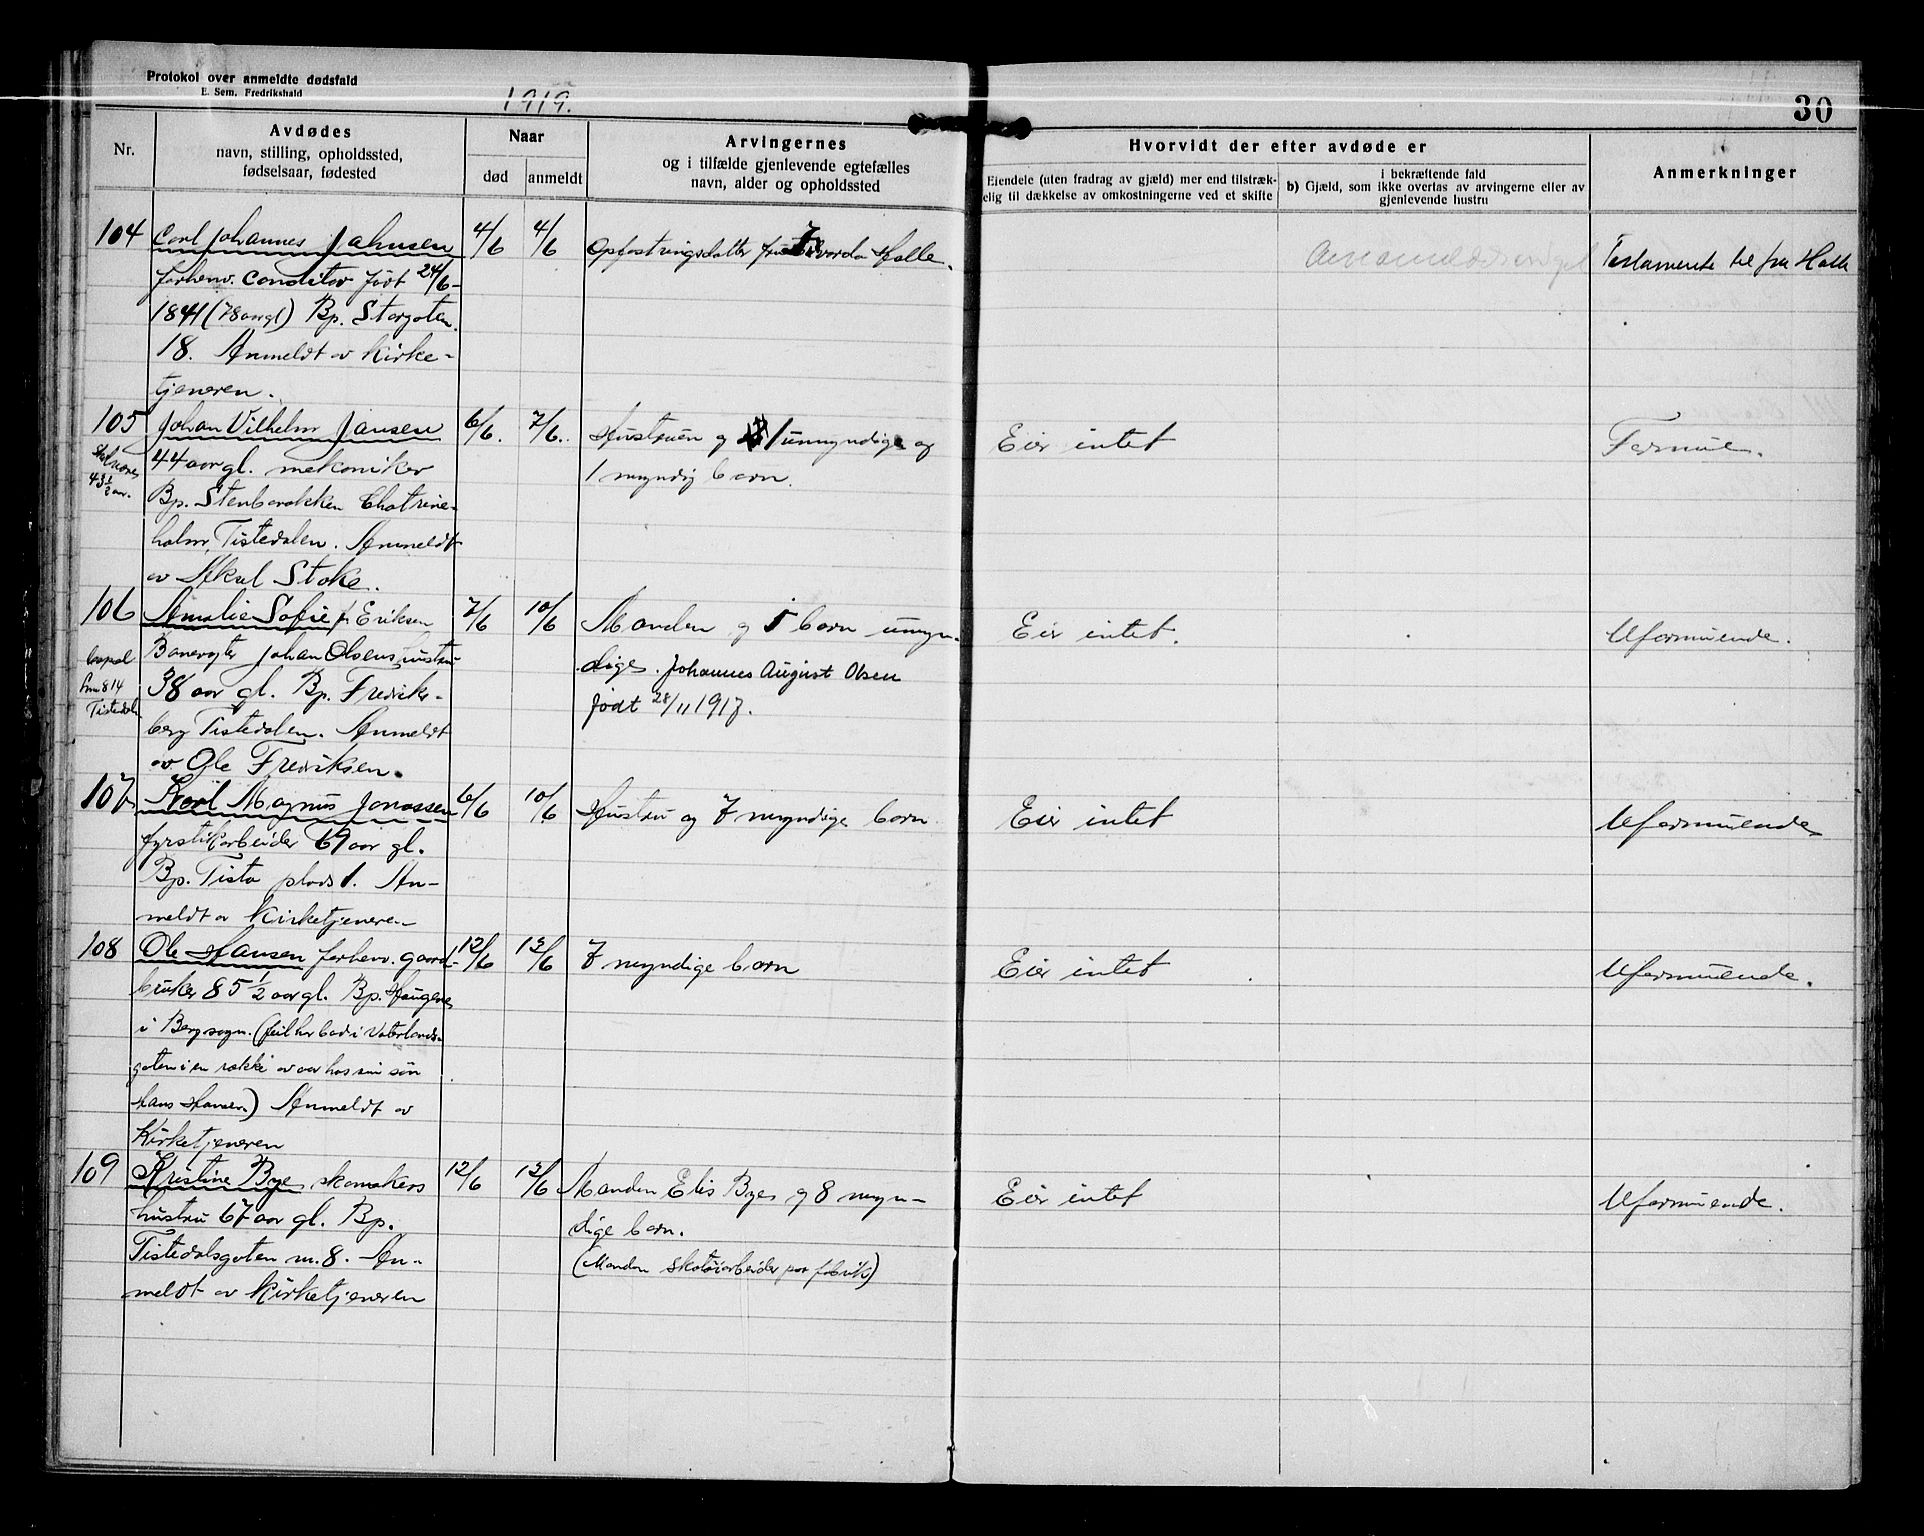 Protokol over anmeldte dødsfald
E. Sem, Fredrikshald
1919.
30
Nr.
Avdødes
navn, stilling, opholdssted,
fødselsaar, fødested
Naar
død
anmeldt
Arvingernes
og i tilfælde gjenlevende egtefælles
navn, alder og opholdssted
Hvorvidt der efter avdøde er
Eiendele (uten fradrag av gjæld) mer end tilstræk-
elig til dækkelse av omkostningerne ved et skifte
i bekræftende fald
b) Gjæld, som ikke overtas av arvingerne eller av
gjenlevende hustru
Anmerkninger
104
Carl Johannes Jahnsen
forhenv. Conditor født 24/6-
1841 (78 aar gl) Bp. Storgaten
18. Anmeldt av Kirke-
tjeneren.
4/6
4/6
Opfostringsdatter fru Halle.
Testamente til fru Halle
105
43½ aar.
Johan Vilhelm Jansen
44 aar gl. mekaniker
Bp. Stenbarakken Chatrine-
holm, Tistedalen. Anmeldt
av Aksel Stoke.
6/6.
7/6.
Hustruen og 1 umyndige og
1 myndig barn.
Eier intet
Formue.
106
814
Tistedal
Amalie Sofie f. Eriksen
Banevogter Johan Olsens hustru
38 aar gl. Bp. Fredriks-
berg Tistedalen. Anmeldt
av Ole Fredriksen.
7/6
10/6
Manden og 5 barn umyn-
dige. Johannes August Olsen
født 28/11 1917.
Eier intet.
Uformuende.
107
Karl Magnus Jonassen
fyrstikarbeider 67 aar gl.
Bp. Tista plads 1. An-
meldt av Kirketjeneren
6/6
10/6
Hustru og 7 myndige barn
Eier intet
Uformuende
108
Ole Hansen forhenv. gaard-
bruker 85 ½ aar gl. Bp. Haugene
i Berg sogn. (feil her bad i Vaterlands-
gaten i en række av aar hos sin søn
Hans Hansen.) Anmeldt av
Kirketjeneren
12/6
13/6
7 myndige barn
Eier intet
Uformuende.
109
Kristine Bye, skomakers
hustru 67 aar gl. Bp.
Tistedalsgaten nr. 8. An-
meldt av Kirketjeneren
12/6
13/6
Manden Elis Bye og 8 myn-
dige barn.
(Manden skotøiarbeider paa fabrik)
Eier intet
Uformuende.